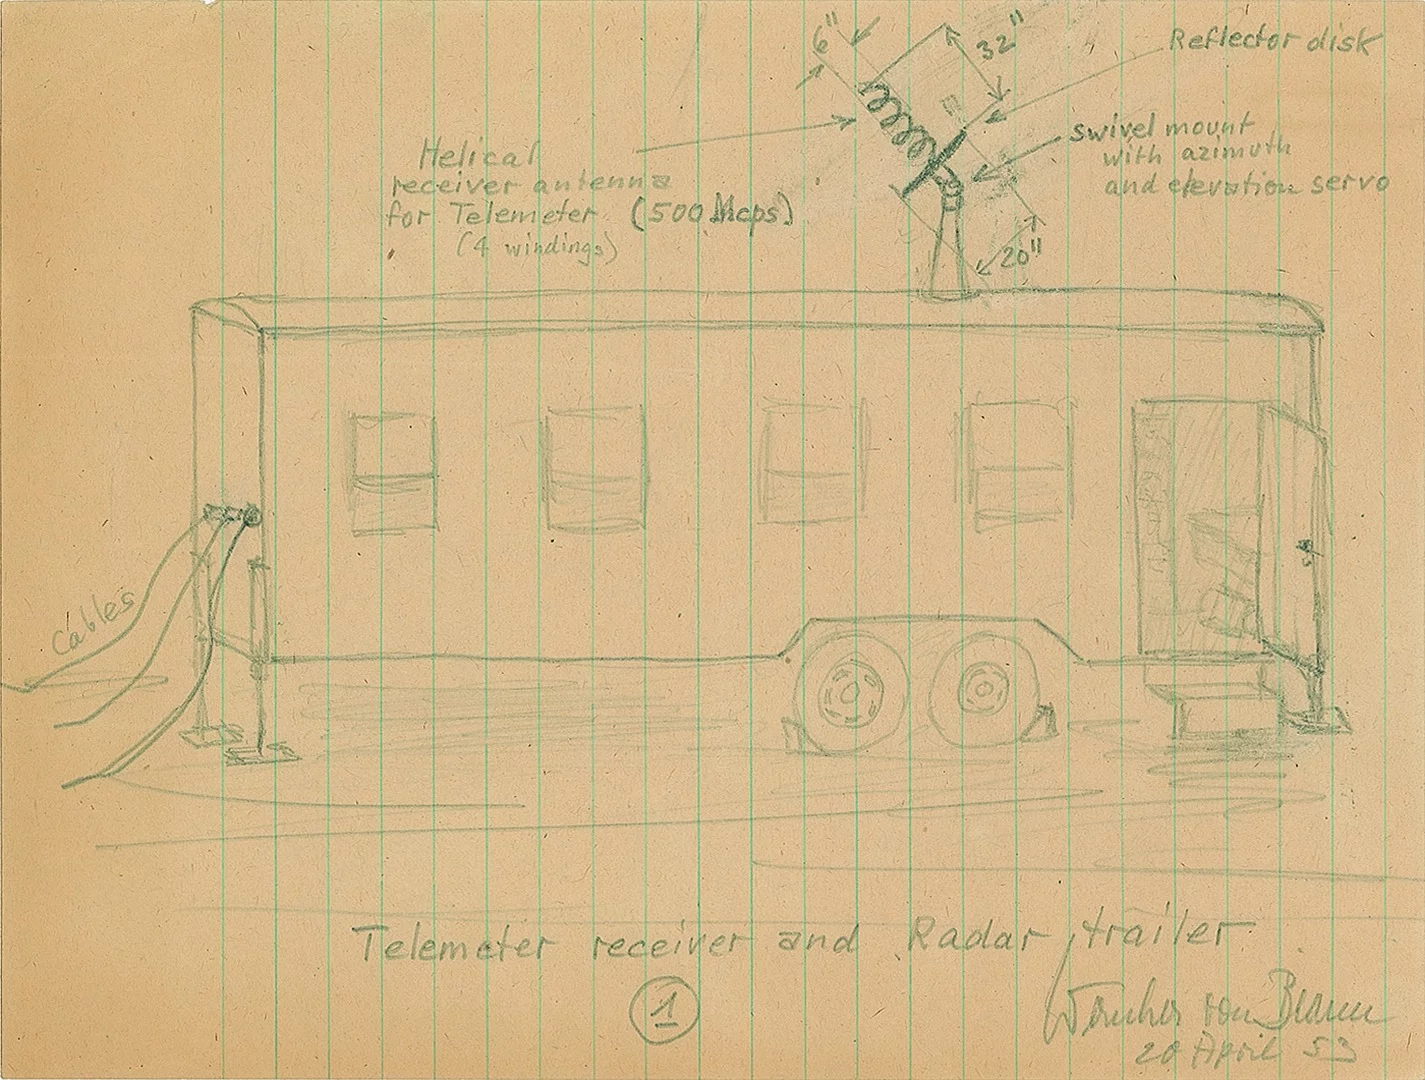 6"
32"
Reflector disk
swivel mount
with azimuth
and elevation servo
Helical
receiver antenna
for Telemeter (500 Mcps)
(4 windings)
20"
Cables
Telemeter receiver and Radar trailer
1
Wernher von Braun
20 April 53